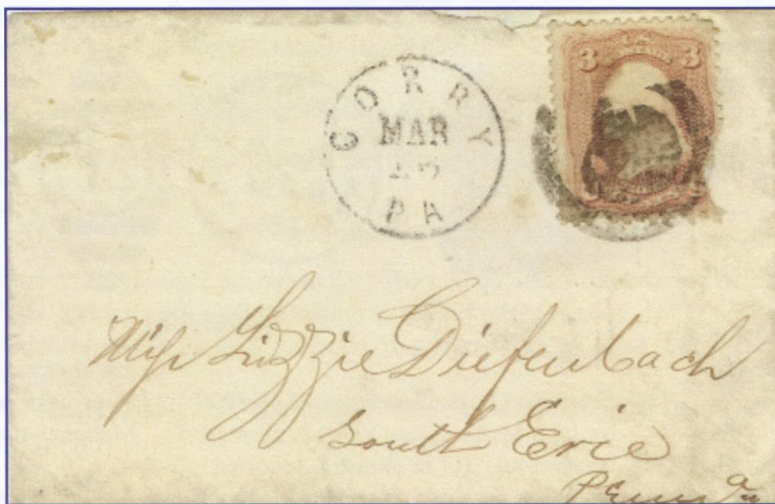 CORRY
MAR
PA
U.S.
3 3
Miss Lizzie Diefenbach
South Erie
Penna